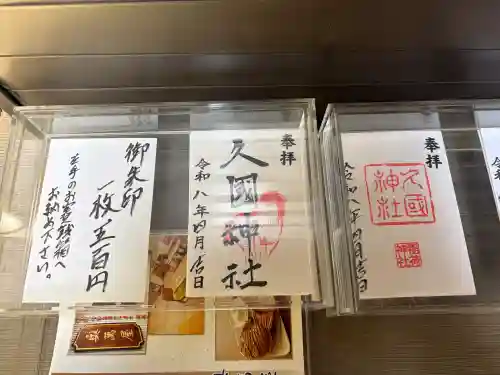 御朱印
一枚五百円
左手のお賽銭箱へ
お納め下さい。
奉拝
久國神社
令和八年四月吉日
奉拝
久國
神社
令和八年四月吉日